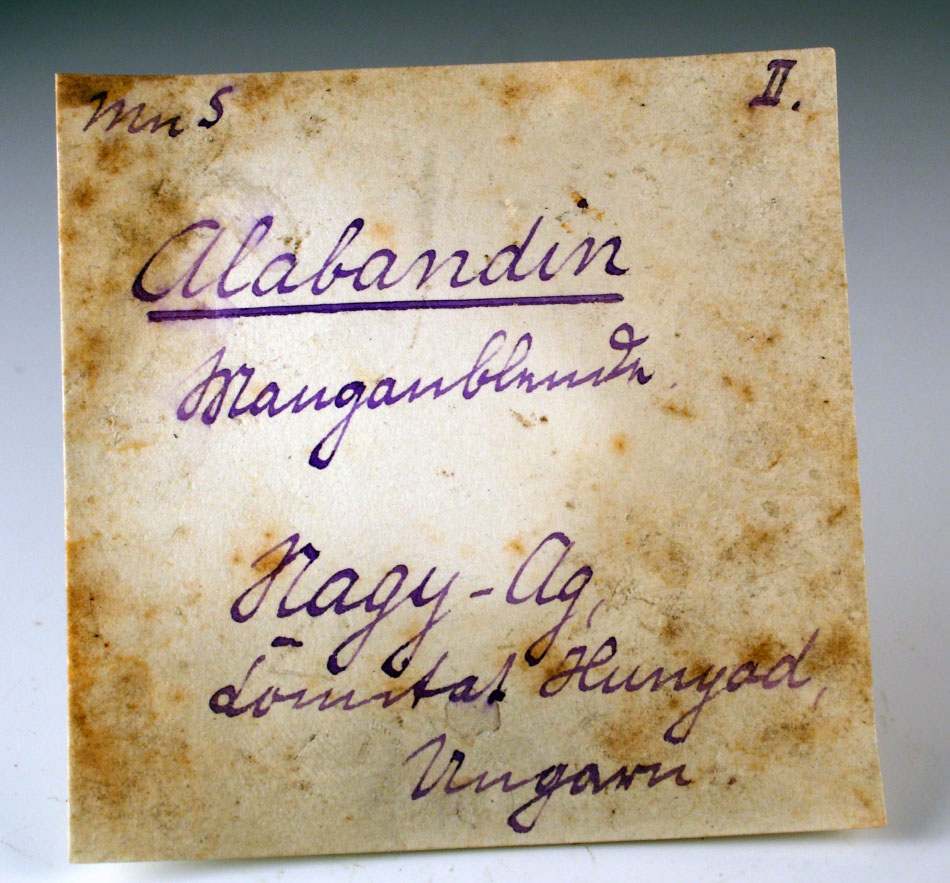 MnS II.
Alabandin
Manganblende
Nagy-Ag,
Comitat Hunyad,
Ungarn.